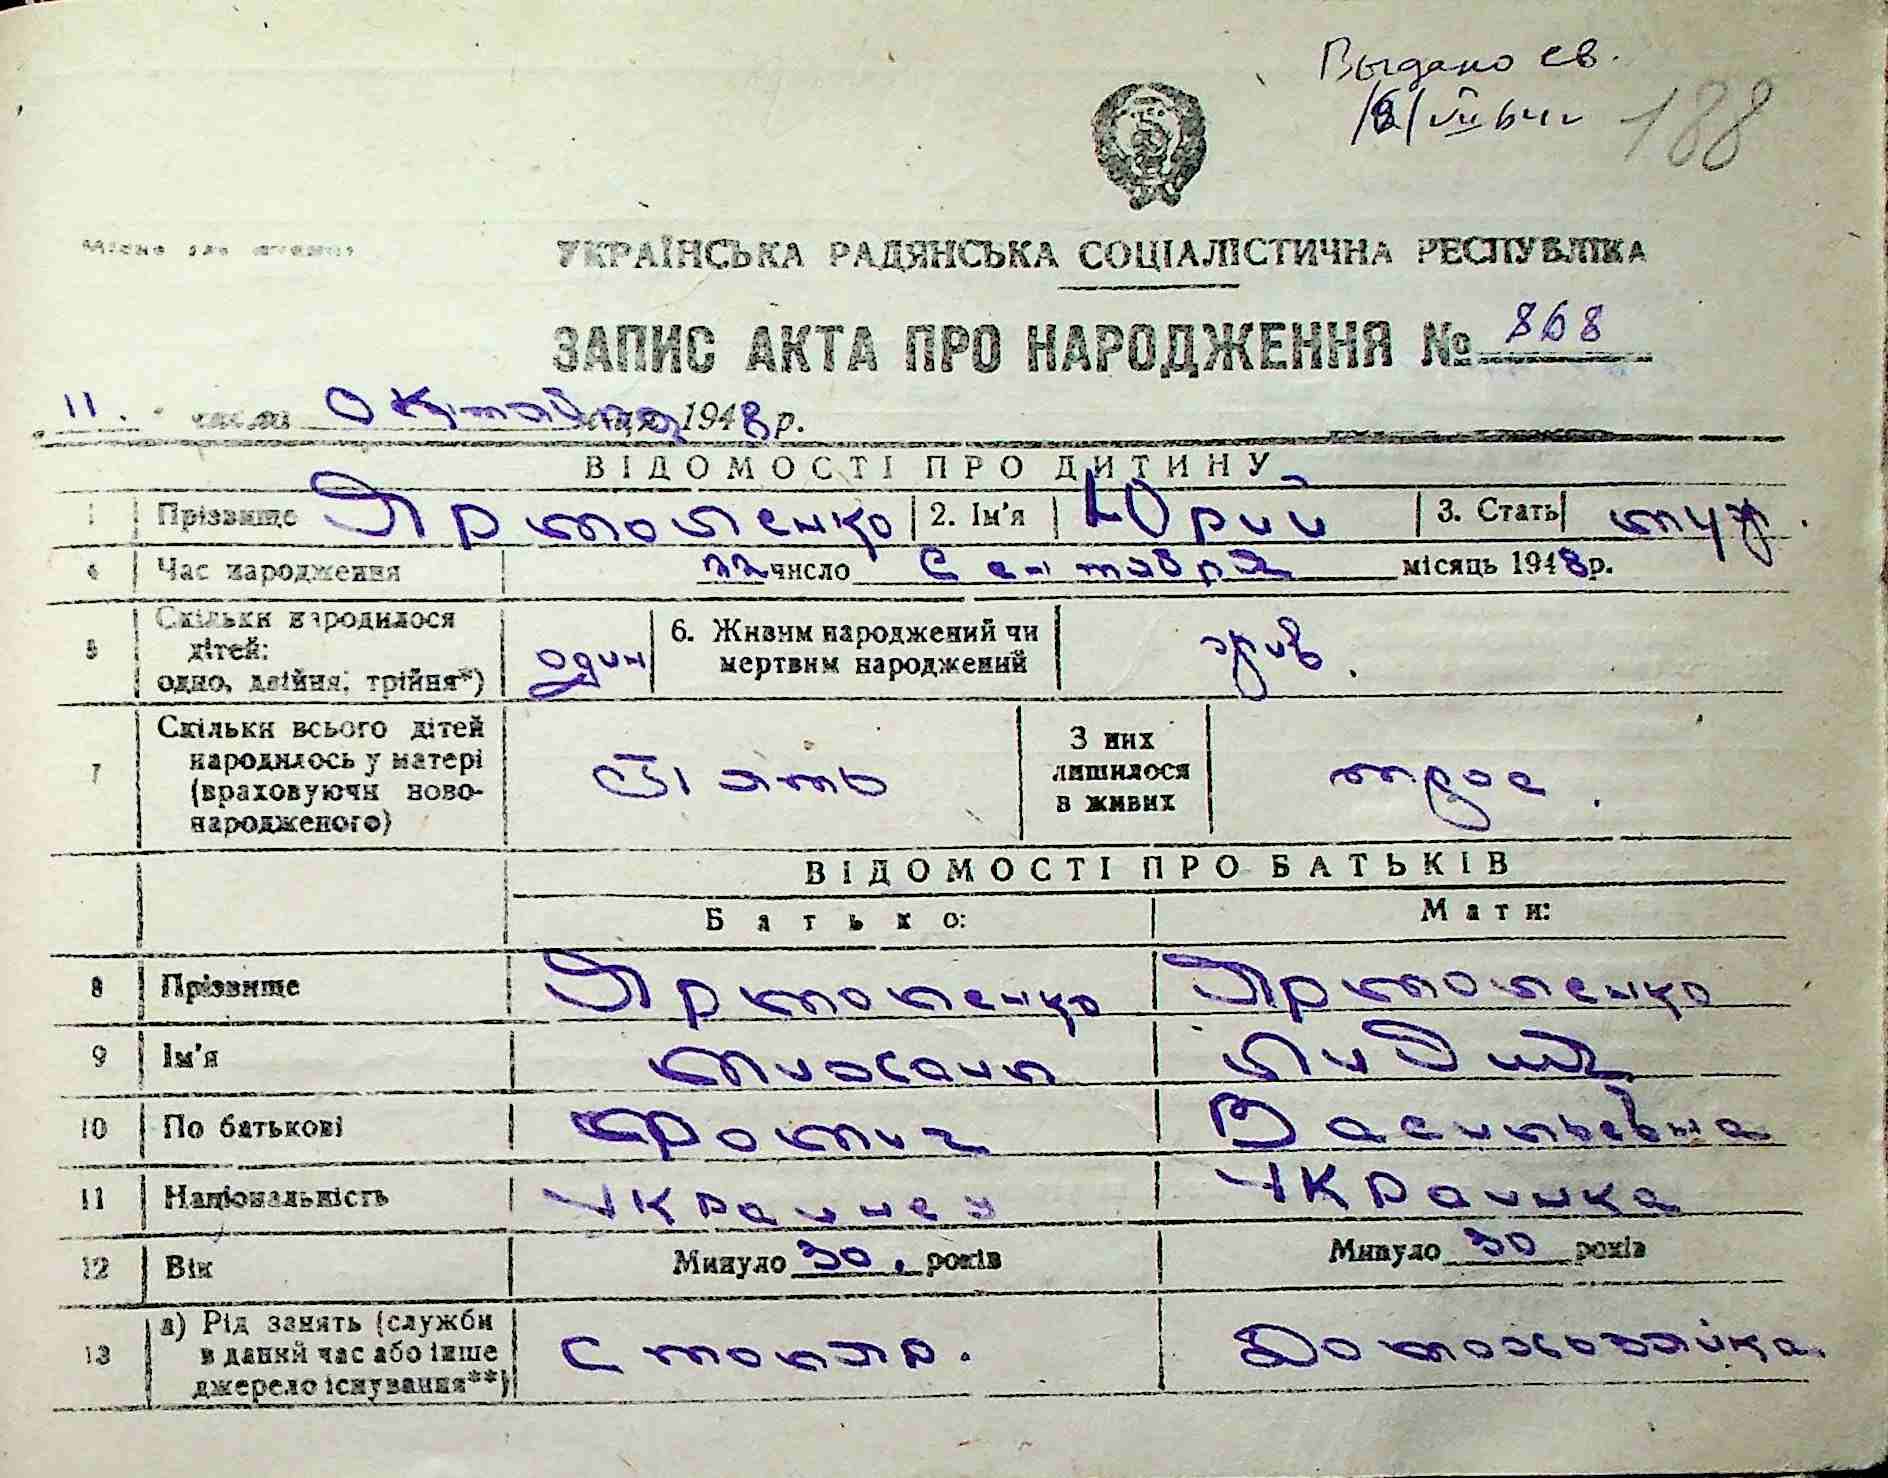 Выдано св.
188
Місце для
УКРАЇНСЬКА РАДЯНСЬКА СОЦІАЛІСТИЧНА РЕСПУБЛІКА
ЗАПИС АКТА ПРО НАРОДЖЕННЯ № 868
„11." числа Октября місяця 1948 р.
ВІДОМОСТІ ПРО ДИТИНУ
1 Прізвище Ярмоленко 2. Ім'я Юрий 3. Стать муж.
4 Час народження 22 число Сентября місяць 1948 р.
5 Скільки народилося дітей: одно, двійня, трійня*) один 6. Живим народжений чи мертвим народжений жив.
7 Скільки всього дітей народилось у матері (враховуючи ново-народженого) Пять З них лишилося в живих трое.
ВІДОМОСТІ ПРО БАТЬКІВ
Батько: Мати:
8 Прізвище Ярмоленко Ярмоленко
9 Ім'я Михаил Лидия
10 По батькові Фомич Васильевна
11 Національність Украинец Украинка
12 Вік Минуло 30. років Минуло 30 років
13 а) Рід занять (служби в даний час або інше джерело існування**) Столяр. Домохозяйка.